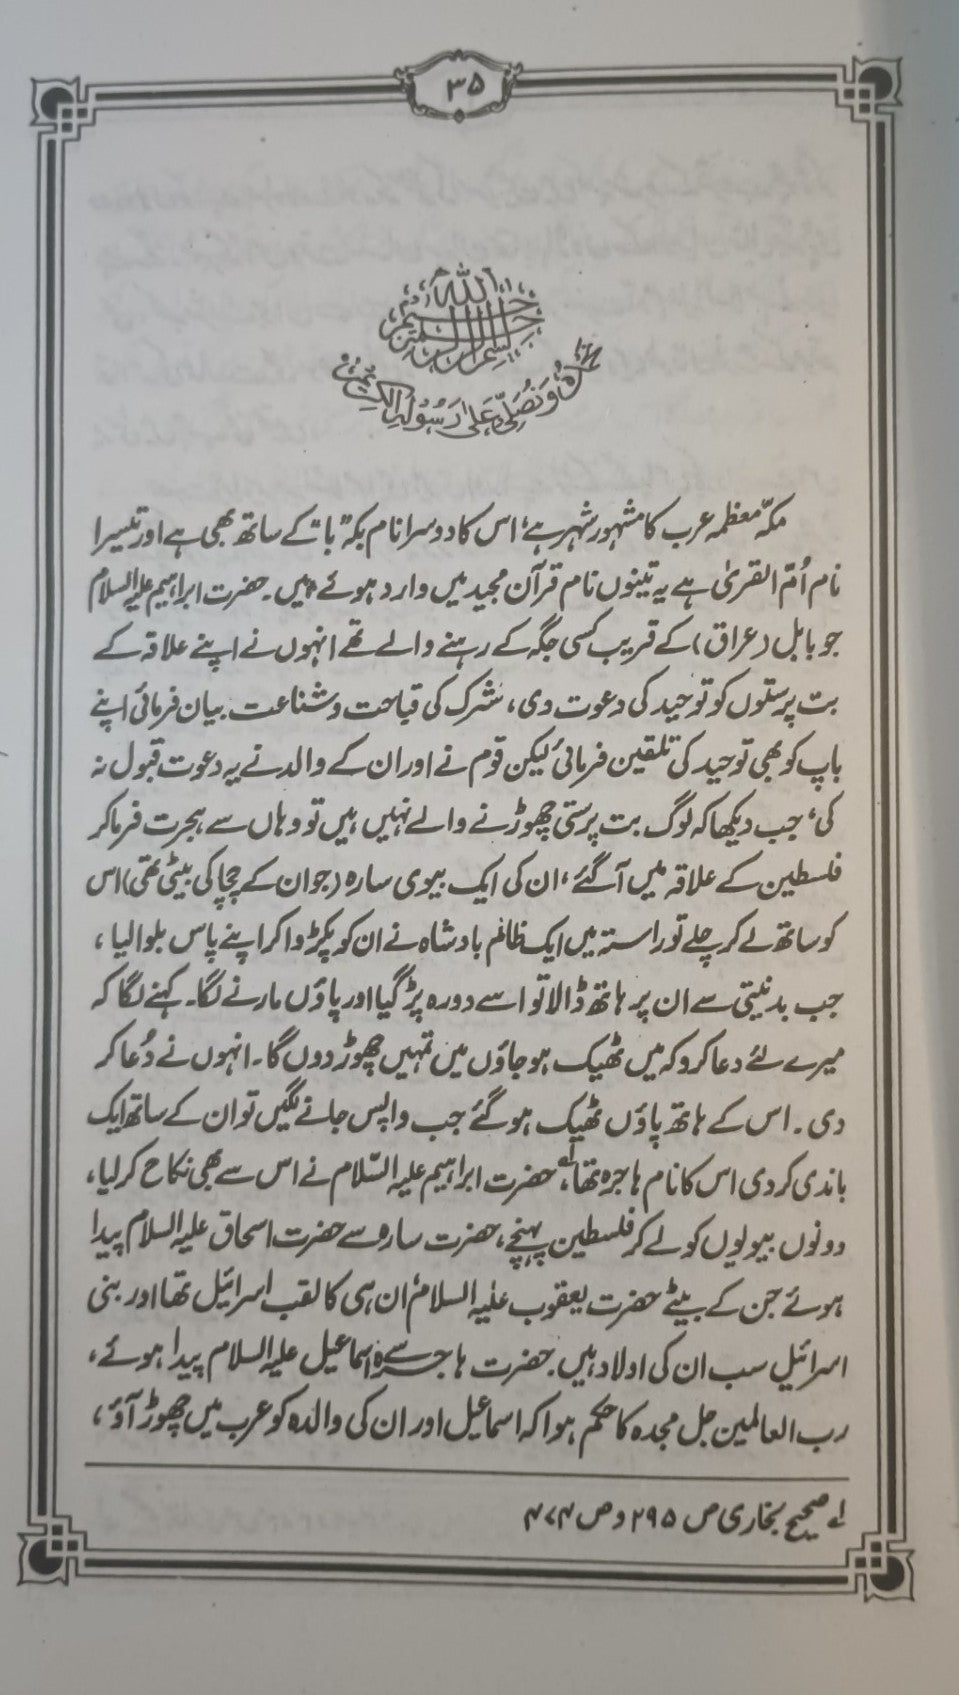 ۳۵
بسم الله الرحمن الرحيم
نحمده ونصلي على رسوله الكريم
مکہّ معظمہ عرب کا مشہور شہر ہے، اس کا دوسرا نام بکہّ "با" کے ساتھ بھی ہے اور تیسرا
نام اُمّ القریٰ ہے یہ تینوں نام قرآن مجید میں وارد ہوئے ہیں۔ حضرت ابراہیم علیہ السلام
جو بابل (عراق) کے قریب کسی جگہ کے رہنے والے تھے انہوں نے اپنے علاقہ کے
بت پرستوں کو توحید کی دعوت دی، شرک کی قباحت و شناعت بیان فرمائی اپنے
باپ کو بھی توحید کی تلقین فرمائی لیکن قوم نے اور ان کے والد نے یہ دعوت قبول نہ
کی، جب دیکھا کہ لوگ بت پرستی چھوڑنے والے نہیں ہیں تو وہاں سے ہجرت فرما کر
فلسطین کے علاقہ میں آگئے، ان کی ایک بیوی سارہ (جو ان کے چچا کی بیٹی تھی) اس
کو ساتھ لے کر چلے تو راستہ میں ایک ظالم بادشاہ نے ان کو پکڑوا کر اپنے پاس بلوا لیا،
جب بدنیتی سے ان پر ہاتھ ڈالا تو اسے دورہ پڑ گیا اور پاؤں مارنے لگا۔ کہنے لگا کہ
میرے لئے دعا کرو کہ میں ٹھیک ہو جاؤں میں تمہیں چھوڑ دوں گا۔ انہوں نے دُعا کر
دی۔ اس کے ہاتھ پاؤں ٹھیک ہو گئے جب واپس جانے لگیں تو ان کے ساتھ ایک
باندی کر دی اس کا نام ہاجرہ تھا،لے حضرت ابراہیم علیہ السّلام نے اس سے بھی نکاح کر لیا،
دونوں بیویوں کو لے کر فلسطین پہنچے، حضرت سارہ سے حضرت اسحاق علیہ السلام پیدا
ہوئے جن کے بیٹے حضرت یعقوب علیہ السلام، ان ہی کا لقب اسرائیل تھا اور بنی
اسرائیل سب ان کی اولاد ہیں۔ حضرت ہاجرہ سے اسماعیل علیہ السلام پیدا ہوئے،
رب العالمین جل مجدہ کا حکم ہوا کہ اسماعیل اور ان کی والدہ کو عرب میں چھوڑ آؤ،
لے صحیح بخاری ص ۲۹۵ و ص ۴۷۴